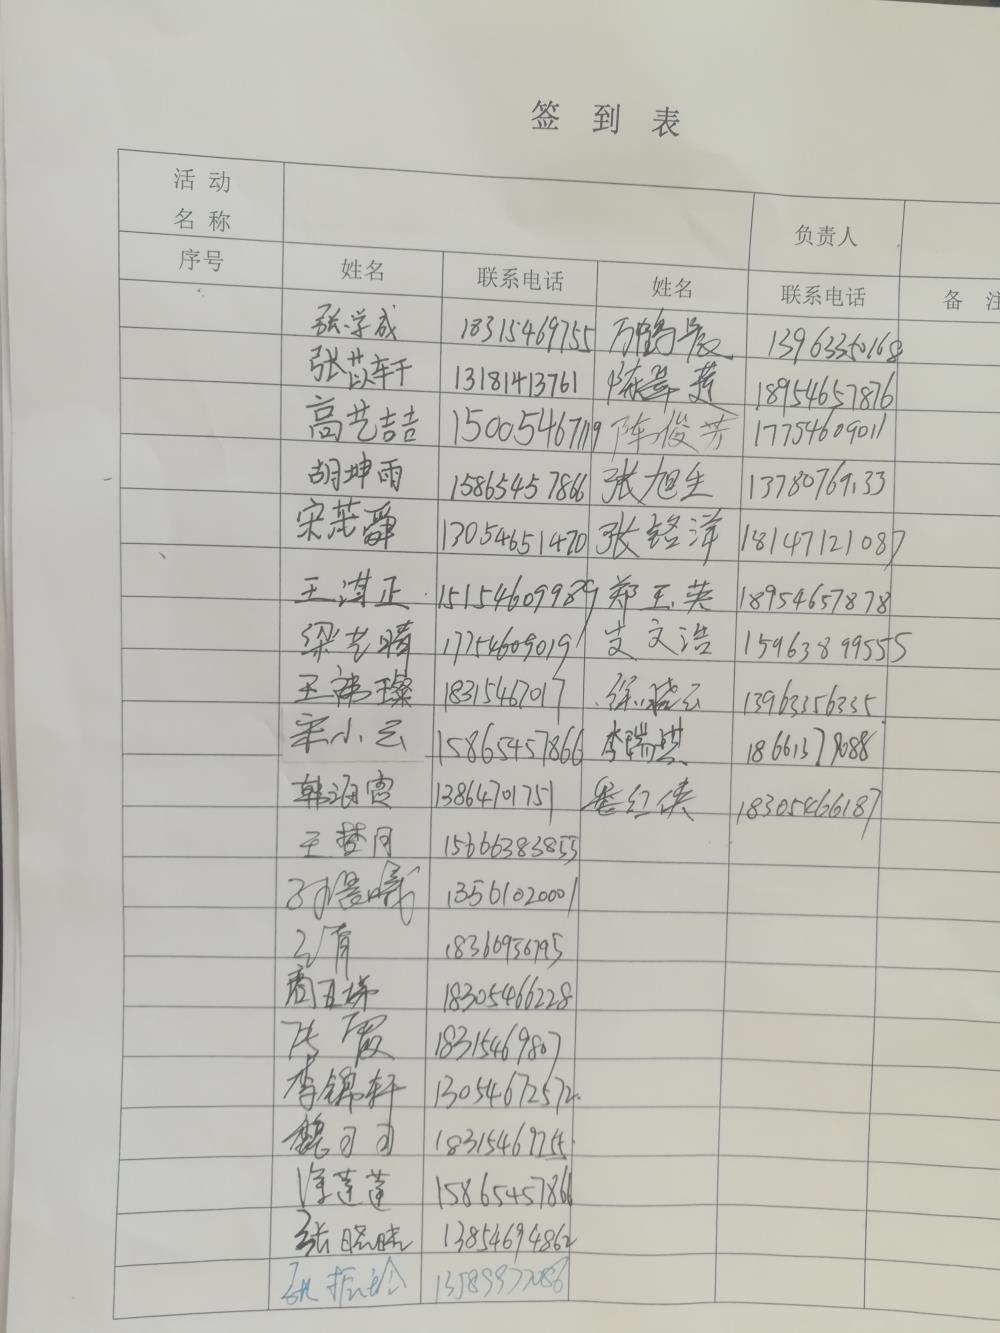 签 到 表
活 动
名 称
负责人
序号 姓名 联系电话 姓名 联系电话 备 注
张学成 18315469755 万鹤 13963350168
张苡轩 13181413761 陈翠莲 18954657876
高艺喆 15005467119 陈俊芳 17754609011
胡坤雨 15865457866 张旭生 13780769133
宋荣 13054651420 张铭洋 18147121087
王淇正 15154609989 郑玉英 18954657878
梁艺晴 17754609019 支文浩 15963899555
王祎璨 18315467017 徐晓云 13963356335
宋小云 15865457866 李瑞琪 18661379088
韩海霞 13864701751 红侠 18305466187
王梦月 15666383855
孙景曦 13561020001
18366936795
商玉娣 18305466228
张霞 18315469807
李锦轩 13054672572
魏可可 1831546975
徐莲莲 15865457866
张晓晴 13854694862